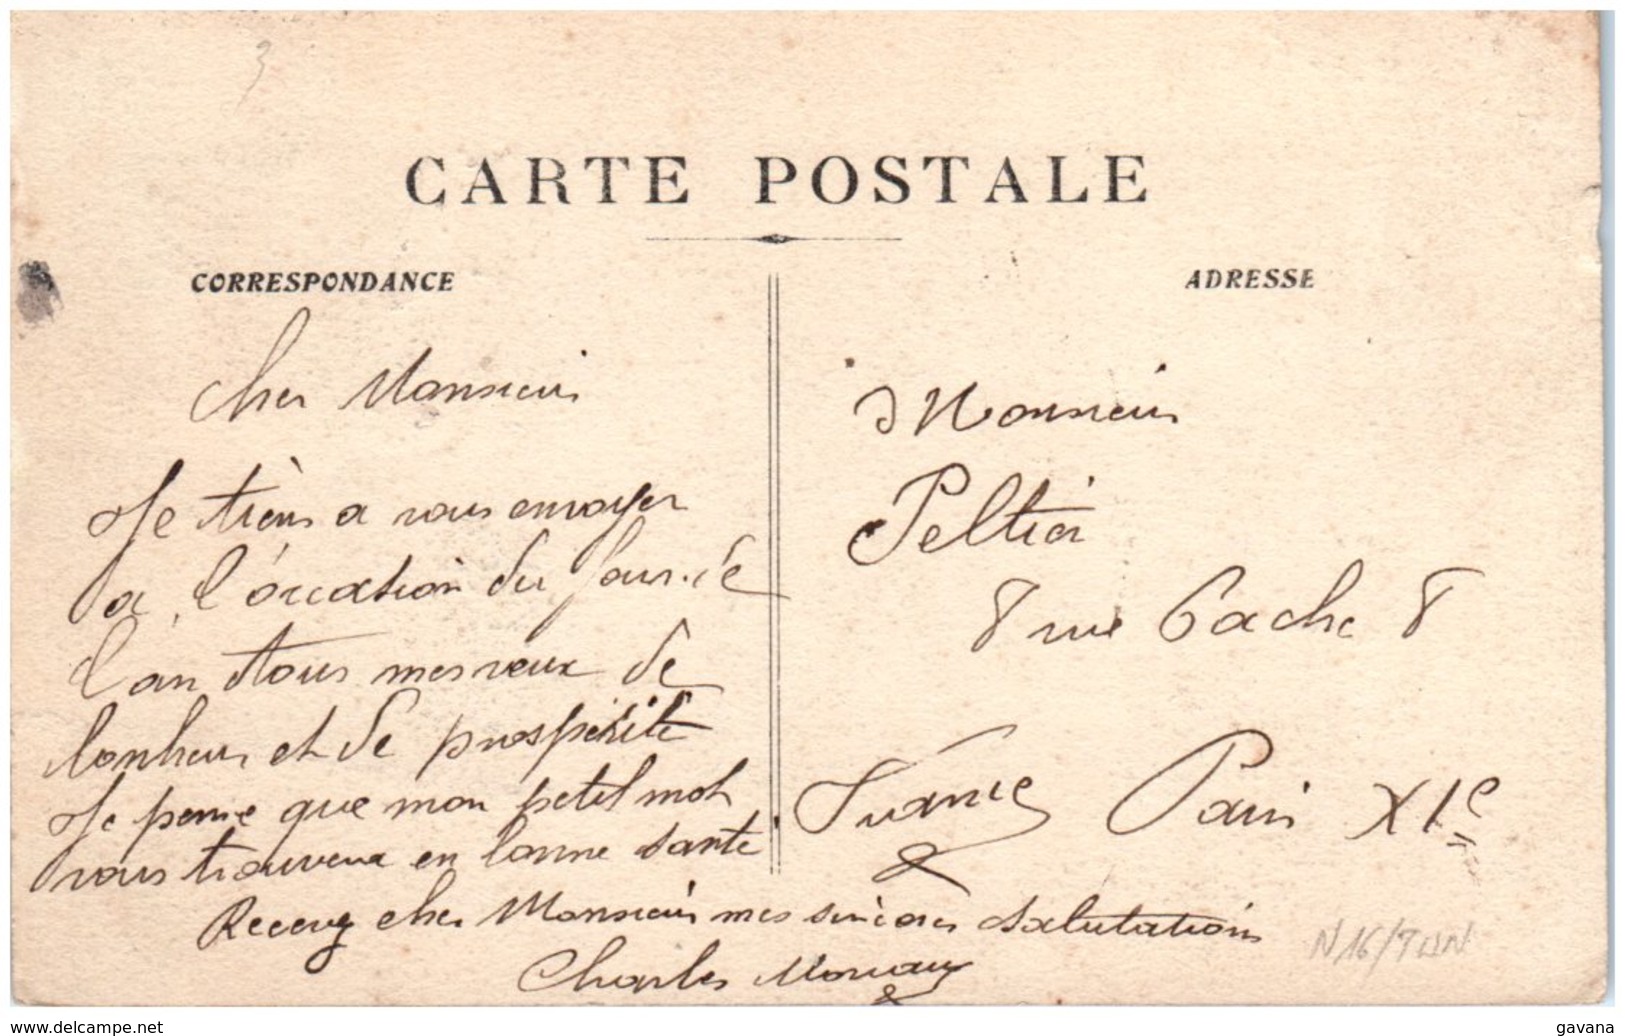 CARTE POSTALE
CORRESPONDANCE
ADRESSE
Cher Monsieur
Je tiens a vous envoyer
a l'occasion du Jour de
l'an tous mes veux de
bonheur et de prospérité
Je pense que mon petit mot
vous trouveras en bonne santé
Recevez cher Monsieur mes sincères salutations
Charles
Monsieur
Peltier
8 rue Gache 8
France Paris XIe
N16/7
www.delcampe.net
gavana